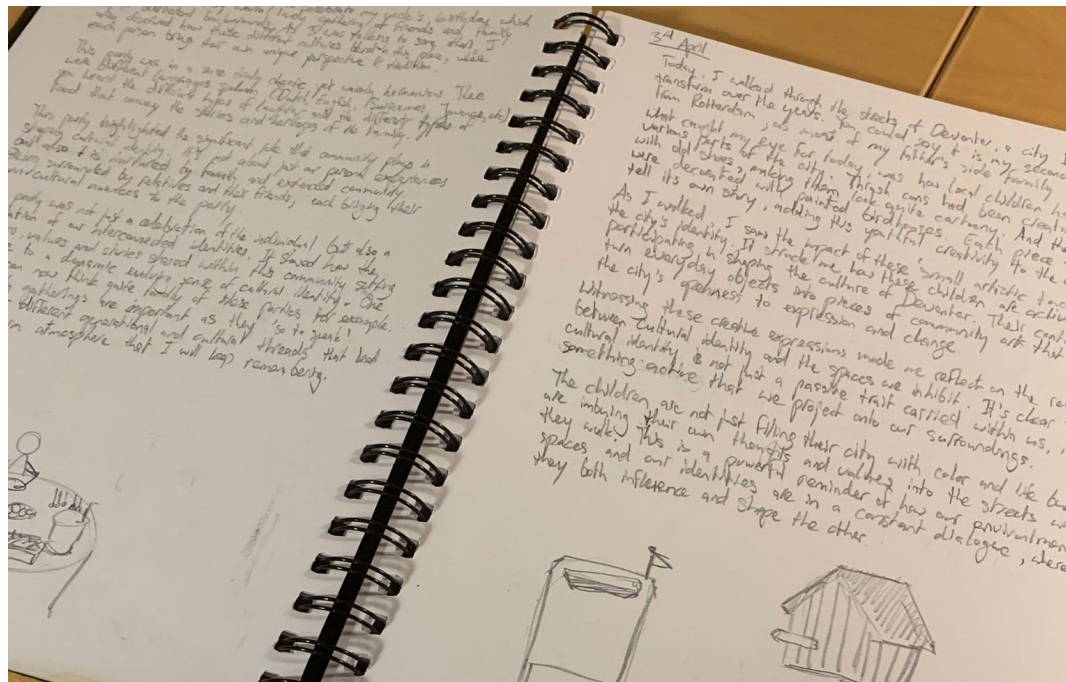 my uncle's birthday, which
warm, lively gathering of friends and family
different backgrounds. As I was talking to some others, I
observed how these different cultures blend in this place, where
each person brings their own unique perspective & tradition.
This party was in a sense truly chaotic, yet warmly harmonious. There
were different languages spoken (Dutch, English, Surinamese, Javanese, etc)
you heard the different types of laughter and the different types of
food that convey the stories and heritages of the family.
This party highlighted the significant role that community plays in
shaping cultural identity. It's not about just our personal experiences
but also it is nurtured by family and extended community
Being surrounded by relatives and their friends, each bringing their
own cultural nuances to the party.
party was not just a celebration of the individual but also a
of our interconnected identities. It showed how the
values and stories shared within this community setting
to a dynamic evolving sense of cultural identity. One
can now think quite family of these parties for example.
gatherings are important as they 'so to speak'
different generational and cultural threads that lead
atmosphere that I will keep remembering.
3rd April
Today, I walked through the streets of Deventer, a city I
transform over the years. You could say it is my second
from Rotterdam, as most of my father's side family
What caught my eye for today, was how local children ha
various parts of the city. Thrash cans had been creativ
with old shoes, making them look quite cartoony. And the
were decorated with painted birdhouses. Each piece
tell its own story, adding this youthful creativity to the
As I walked, I saw the impact of these small artistic
the city's identity. It struck me how these children are activ
participating in shaping the culture of Deventer. Their
turn everyday objects into pieces of community art that
the city's openness to expression and change.
Witnessing these creative expressions made me reflect on the re
between cultural identity and the spaces we inhibit. It's clear
cultural identity is not just a passive trait carried within us,
something active that we project onto our surroundings.
The children are not just filling their city with color and life bu
are imbuing their own thoughts and values into the streets
they walk. This is a powerful reminder of how our environment
spaces and our identities are in a constant dialogue, where
they both inference and shape the other.